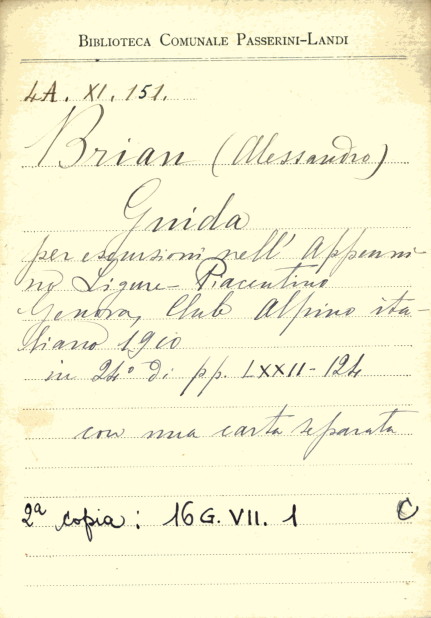 BIBLIOTECA COMUNALE PASSERINI-LANDI
4A. XI. 151.
Brian (Alessandro)
Guida
per escursioni nell' Appenni-
no Ligure-Piacentino
Genova, Club Alpino ita-
liano 1910
in 24° di pp. LXXII-124
con una carta separata
2ª copia: 16 G. VII. 1 C